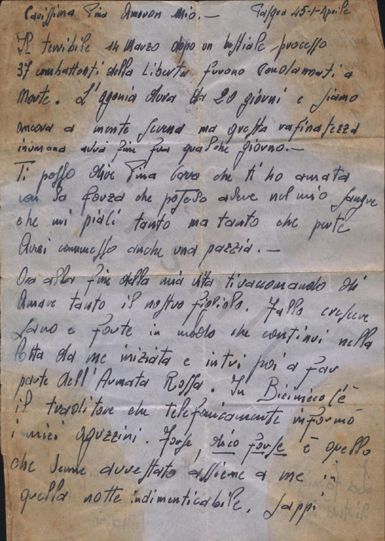 Carissima Pina Amoron Mio. —
Il terribile 14 marzo dopo un bestiale processo
37 combattenti della Libertà furono condannati a
Morte. L'agonia dura da 20 giorni e siamo
ancora a mente serena ma questa rafinatezza
inumana avrà fine fra qualche giorno. —
Ti posso dire Pina cara che ti ho amata
con la forza che poteva avere nel mio sangue
che mi piali tanto ma tanto che per te
Avrei commesso anche una pazzia. —
Ora alla fine della mia vita ti raccomando di
Amare tanto il nostro figliolo. Fallo crescere
sano e forte in modo che continui nella
lotta da me iniziata e entri poi a far
parte dell'Armata Rossa. In c'è
il traditore che telefonicamente informò
i miei aguzzini. Forse, dico forse è quello
che venne arrestato assieme a me in
quella notte indimenticabile. Sappi